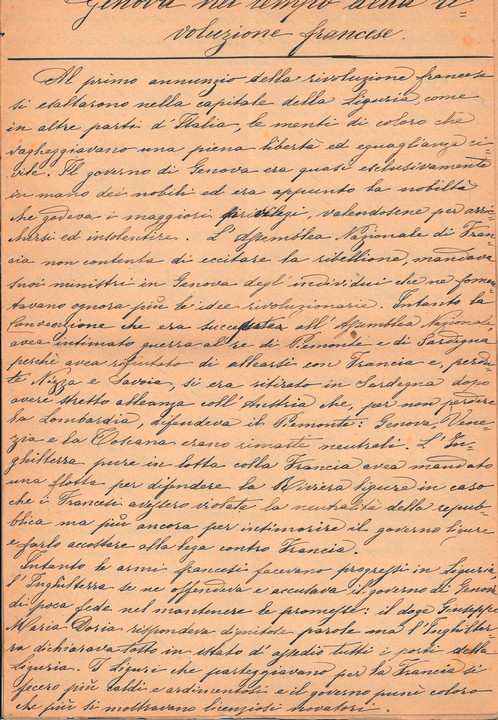 Genova nel tempo della ri=
voluzione francese.
Al primo annunzio della rivoluzione francese
si esaltarono nella capitale della Liguria, come
in altre parti d'Italia, le menti di coloro che
vagheggiavano una piena libertà ed eguaglianza ci=
vile. Il governo di Genova era quasi esclusivamente
in mano dei nobili ed era appunto la nobiltà
che godeva i maggiori privilegi, valendosene per arric=
chirsi ed insolentire. L'Assemblea Nazionale di Fran=
cia non contenta di eccitare la ribellione, mandava
suoi ministri in Genova degl'individui che ne fomen=
tavano ognora più le idee rivoluzionarie. Intanto la
Convenzione che era succeduta all'Assemblea Nazionale
avea intimato guerra al re di Piemonte e di Sardegna
perchè avea rifiutato di allearsi con Francia e, perdu=
te Nizza e Savoia, si era ritirato in Sardegna dopo
avere stretto alleanza coll'Austria che, per non perdere
la Lombardia, difendeva il Piemonte: Genova, Vene=
zia e la Toscana erano rimaste neutrali. L'In=
ghilterra pure in lotta colla Francia avea mandato
una flotta per difendere la Riviera ligure in caso
che i Francesi avessero violata la neutralità della repub=
blica ma più ancora per intimorire il governo ligure
e farlo accostare alla lega contro Francia.
Intanto le armi francesi facevano progressi in Liguria
l'Inghilterra se ne offendeva e accusava il governo di Genova
di poca fede nel mantenere le promesse: il doge Giuseppe
Maria Doria rispondeva dignitose parole ma l'Inghilter=
ra dichiarava tosto in istato di assedio tutti i porti della
Liguria. I Liguri che parteggiavano per la Francia si
fecero più caldi e ardimentosi e il governo punì coloro
che più si mostravano licenziosi novatori.